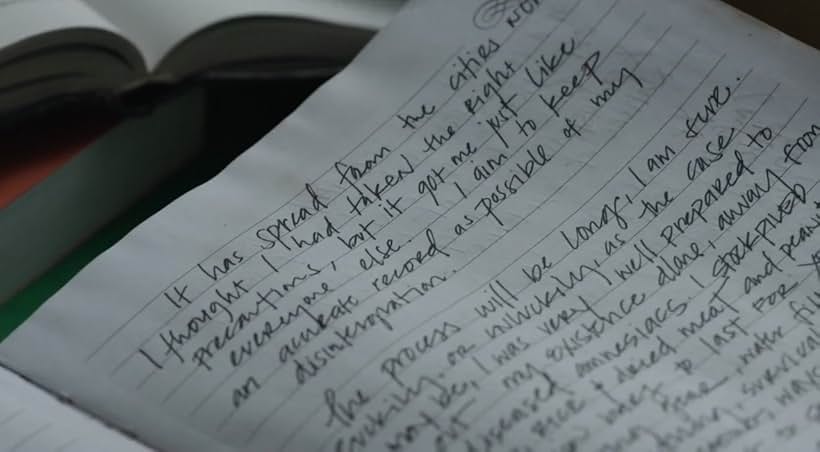 It has spread from the cities
I thought I had taken the right
precautions, but it got me just like
everyone else. I aim to keep
an accurate record as possible of my
disintegration.
The process will be long, I am sure.
or unlucky, as the case
may be, I was very well prepared to
my existence alone, away from
diseased amnesiacs. I STOCKPILED
RICE & dried meat and peanut
to last FOR
water
survival
ways